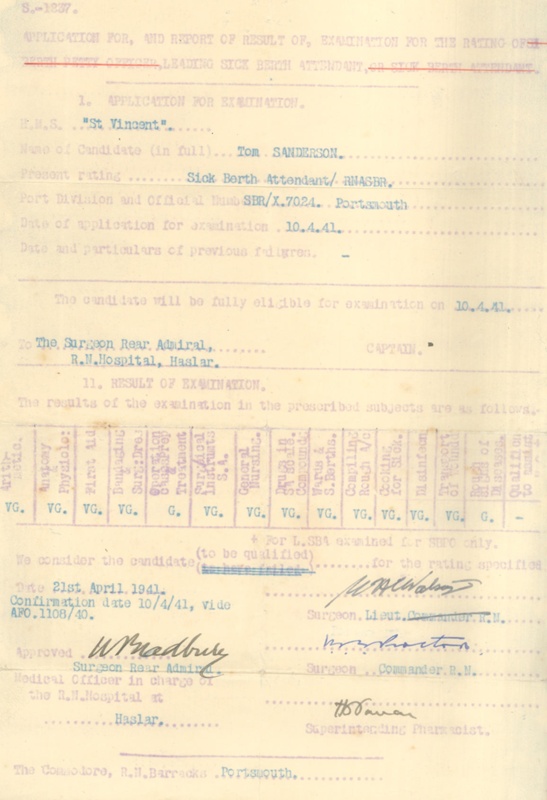 S.-1237.
APPLICATION FOR, AND REPORT OF RESULT OF, EXAMINATION FOR THE RATING OF
BERTH PETTY OFFICER, LEADING SICK BERTH ATTENDANT, OR SICK BERTH ATTENDANT.
1. APPLICATION FOR EXAMINATION.
H.M.S. "St Vincent".
Name of Candidate (in full) Tom SANDERSON.
Present rating Sick Berth Attendant/ RNASBR.
Port Division and Official Numb SBR/X.7024. Portsmouth
Date of application for examination 10.4.41.
Date and particulars of previous failures. -
The candidate will be fully eligible for examination on 10.4.41.
To The Surgeon Rear Admiral,
R.N.Hospital, Haslar.
CAPTAIN.
11. RESULT OF EXAMINATION.
The results of the examination in the prescribed subjects are as follows.
Arith- metic. Anatomy Physiolo: First Aid Bandaging Surg:Dres. Operation & Treatment Surgical Instruments S.A. General Nursing. Drugs in S.A. Wards & S.Berths. Compiling Rough A/c Cooking for Sick. Disinfecn Transport of Wounded of Qualificn
VG. VG. VG. VG. G. VG. VG. VG. VG. VG. VG. VG. VG. G. -
* For L.SBA examined for SBPO only.
(to be qualified)
We consider the candidate (to have failed ( for the rating specified
Date 21st April 1941.
Confirmation date 10/4/41, vide
AFO.1108/40.
Surgeon Lieut. Commander R.N.
Approved W Bradbury
Surgeon Rear Admiral.
Surgeon Commander R.N.
Medical Officer in charge of
the R.N.Hospital at
Haslar.
Superintending Pharmacist.
The Commodore, R.N.Barracks Portsmouth.